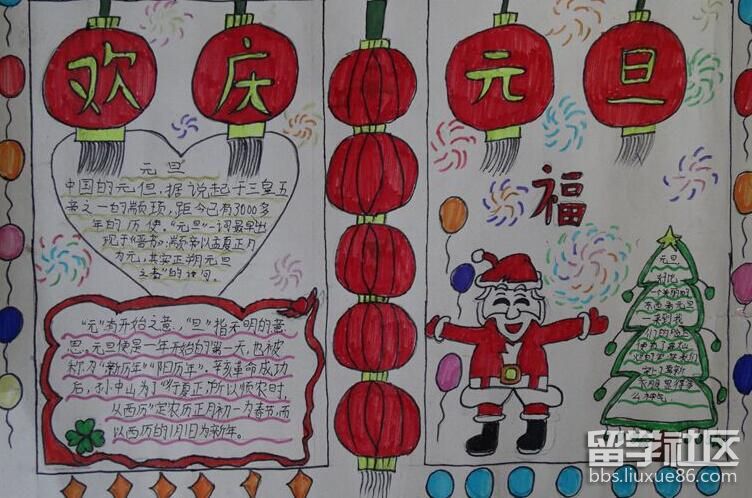 欢 庆 元 旦
元旦
中国的元但，据说起于三皇五
帝之一的颛顼，距今已有3000多
年的历使。"元旦"一词最早出
现于《晋书》：颛帝以孟夏正月
为元，其实正朔元旦
之春"的诗句。
"元"有开始之意，"旦"指天明的意
思。元旦便是一年开始的第一天，也被
称为"新历年""阳历年"。辛亥革命成功
后，孙中山为了"行夏正，所以顺农时，
从西历"定农历正月初一为春节，而
以西历的1月1日为新年。
福
元旦，
一个美丽的
来到我
们的
么神气
留学社区
bbs.liuxue86.com